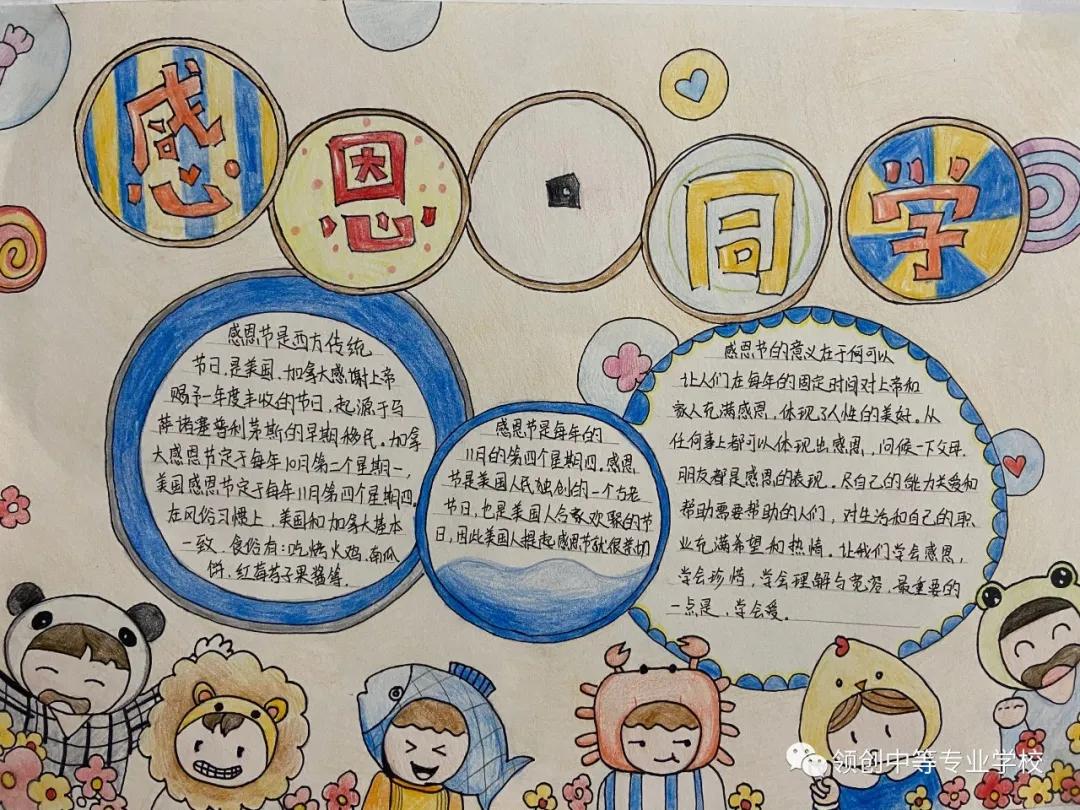 感恩·同学
感恩节是西方传统
节日,是美国、加拿大感谢上帝
赐予一年度丰收的节日,起源于马
萨诸塞普利茅斯的早期移民。加拿
大感恩节定于每年10月第二个星期一,
美国感恩节定于每年11月第四个星期四。
在风俗习惯上,美国和加拿大基本
一致,食俗有:吃烤火鸡、南瓜
饼、红莓苔子果酱等。
感恩节是每年的
11月的第四个星期四。感恩
节是美国人民独创的一个古老
节日,也是美国人合家欢聚的节
日,因此美国人提起感恩节就很亲切
感恩节的意义在于何可以
让人们在每年的固定时间对上帝和
家人充满感恩,体现了人性的美好。从
任何事上都可以体现出感恩,问候一下父母、
朋友都是感恩的表现。尽自己的能力关爱和
帮助需要帮助的人们,对生活和自己的职
业充满希望和热情。让我们学会感恩,
学会珍惜,学会理解与宽容,最重要的
一点是,学会爱。
领创中等专业学校